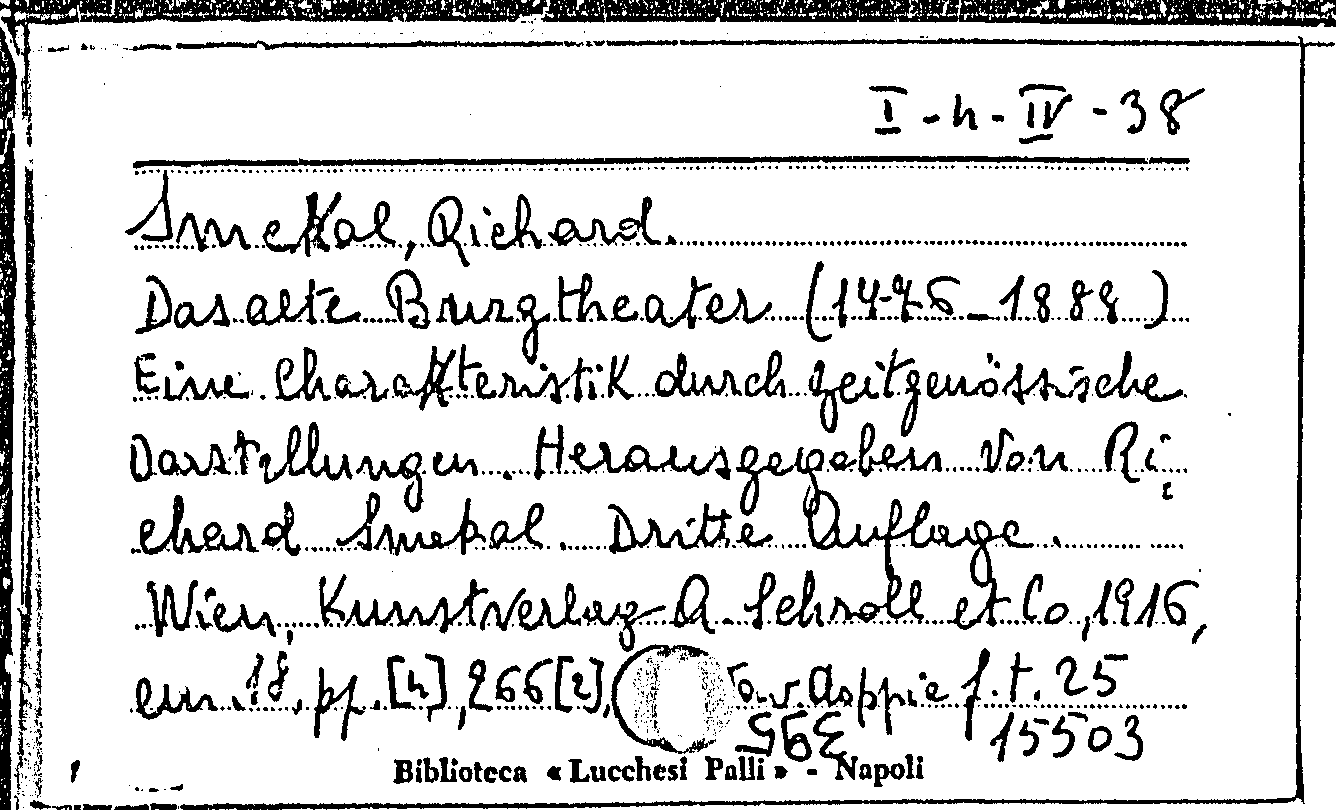 I - h - IV - 38
Smekal, Richard.
Das alte Burgtheater (1776 - 1888)
Eine Charakteristik durch zeitgenössische
Darstellungen. Herausgegeben von Ri
chard Smekal. Dritte Auflage.
Wien, Kunstverlag A. Schroll et Co, 1916,
cm. 18, pp. [4], 266 [2], tav. doppie f. t. 25
15503
Biblioteca « Lucchesi Palli » - Napoli